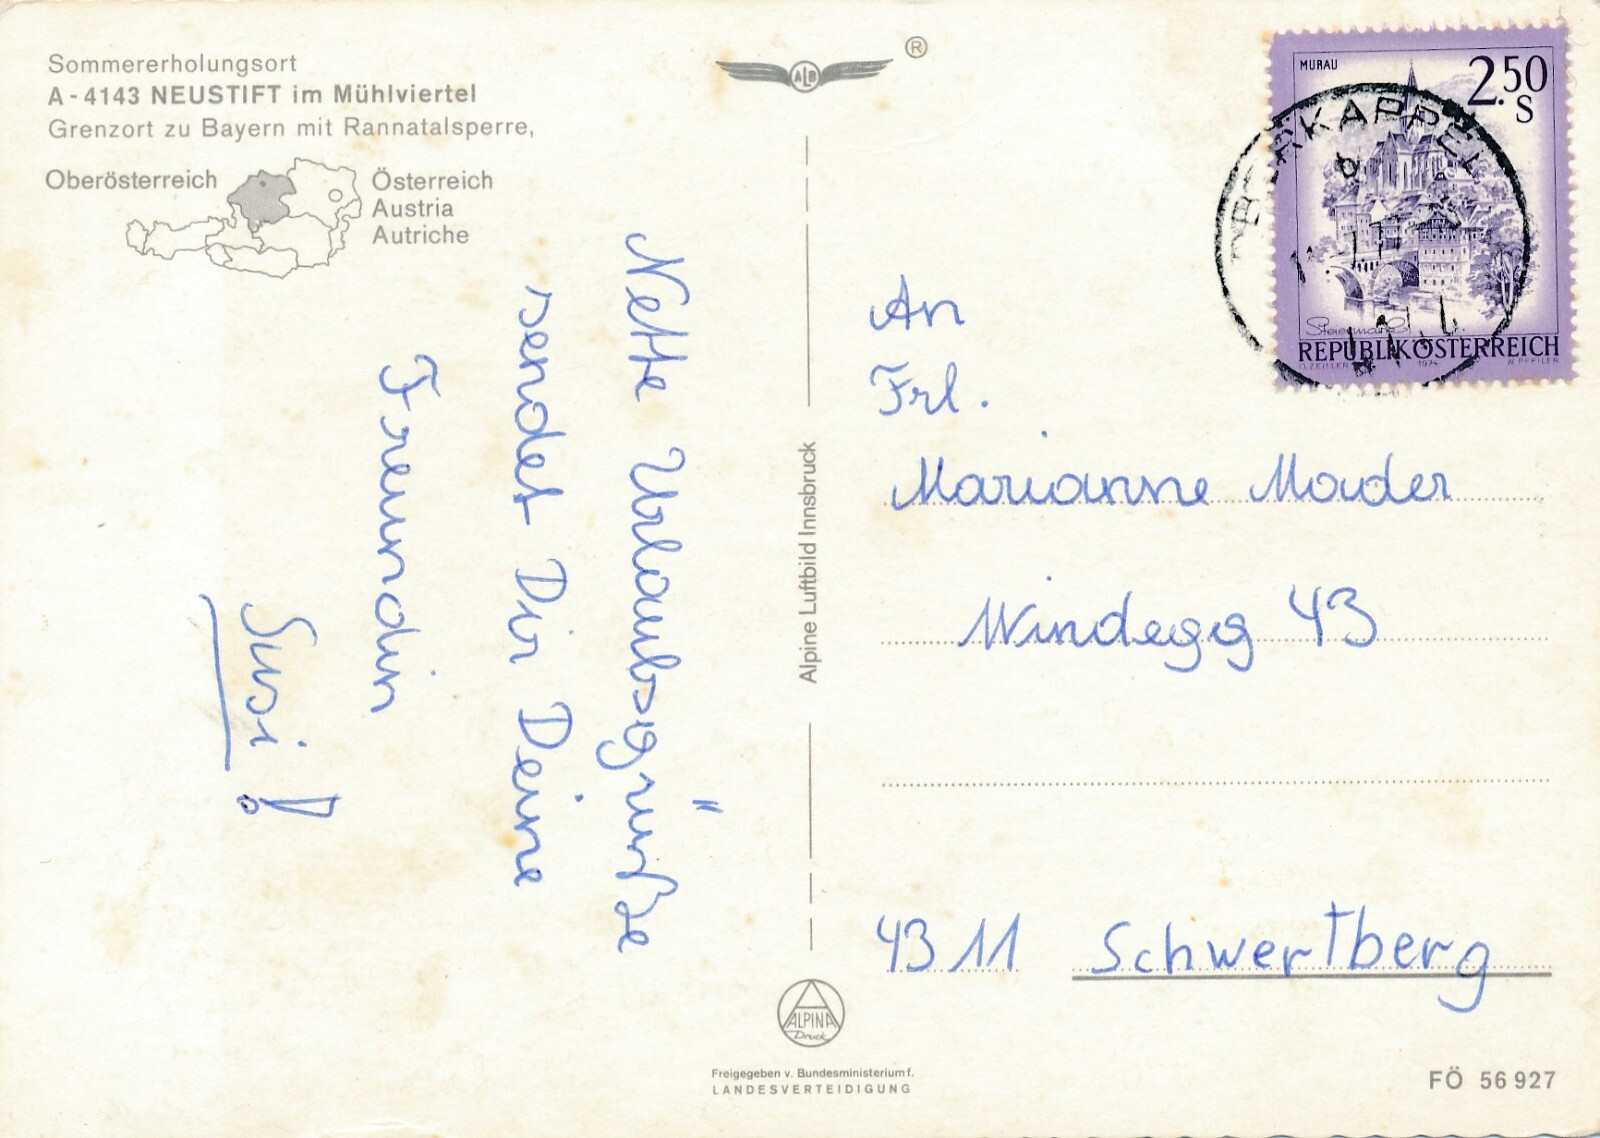 Sommererholungsort
A - 4143 NEUSTIFT im Mühlviertel
Grenzort zu Bayern mit Rannatalsperre,
Oberösterreich
Österreich
Austria
Autriche
ALB
®
Nette Urlaubsgrüße
sendet Dir Deine
Freundin
Susi!
Alpine Luftbild Innsbruck
ALPINA
Druck
Freigegeben v. Bundesministerium f.
LANDESVERTEIDIGUNG
MURAU
2.50
S
OBERKAPPEL
Steiermark
REPUBLIK ÖSTERREICH
O. ZEILLER 1974 W. PFEILER
An
Frl.
Marianne Mader
Windegg 43
4311 Schwertberg
FÖ 56 927